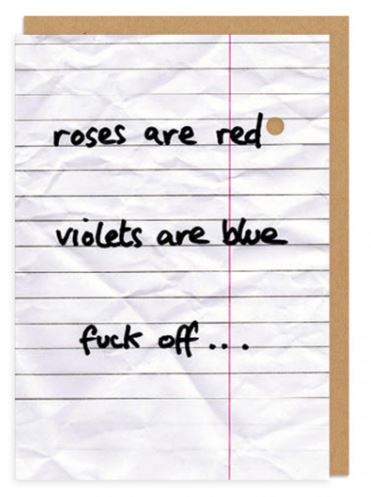 roses are red
violets are blue
fuck off...